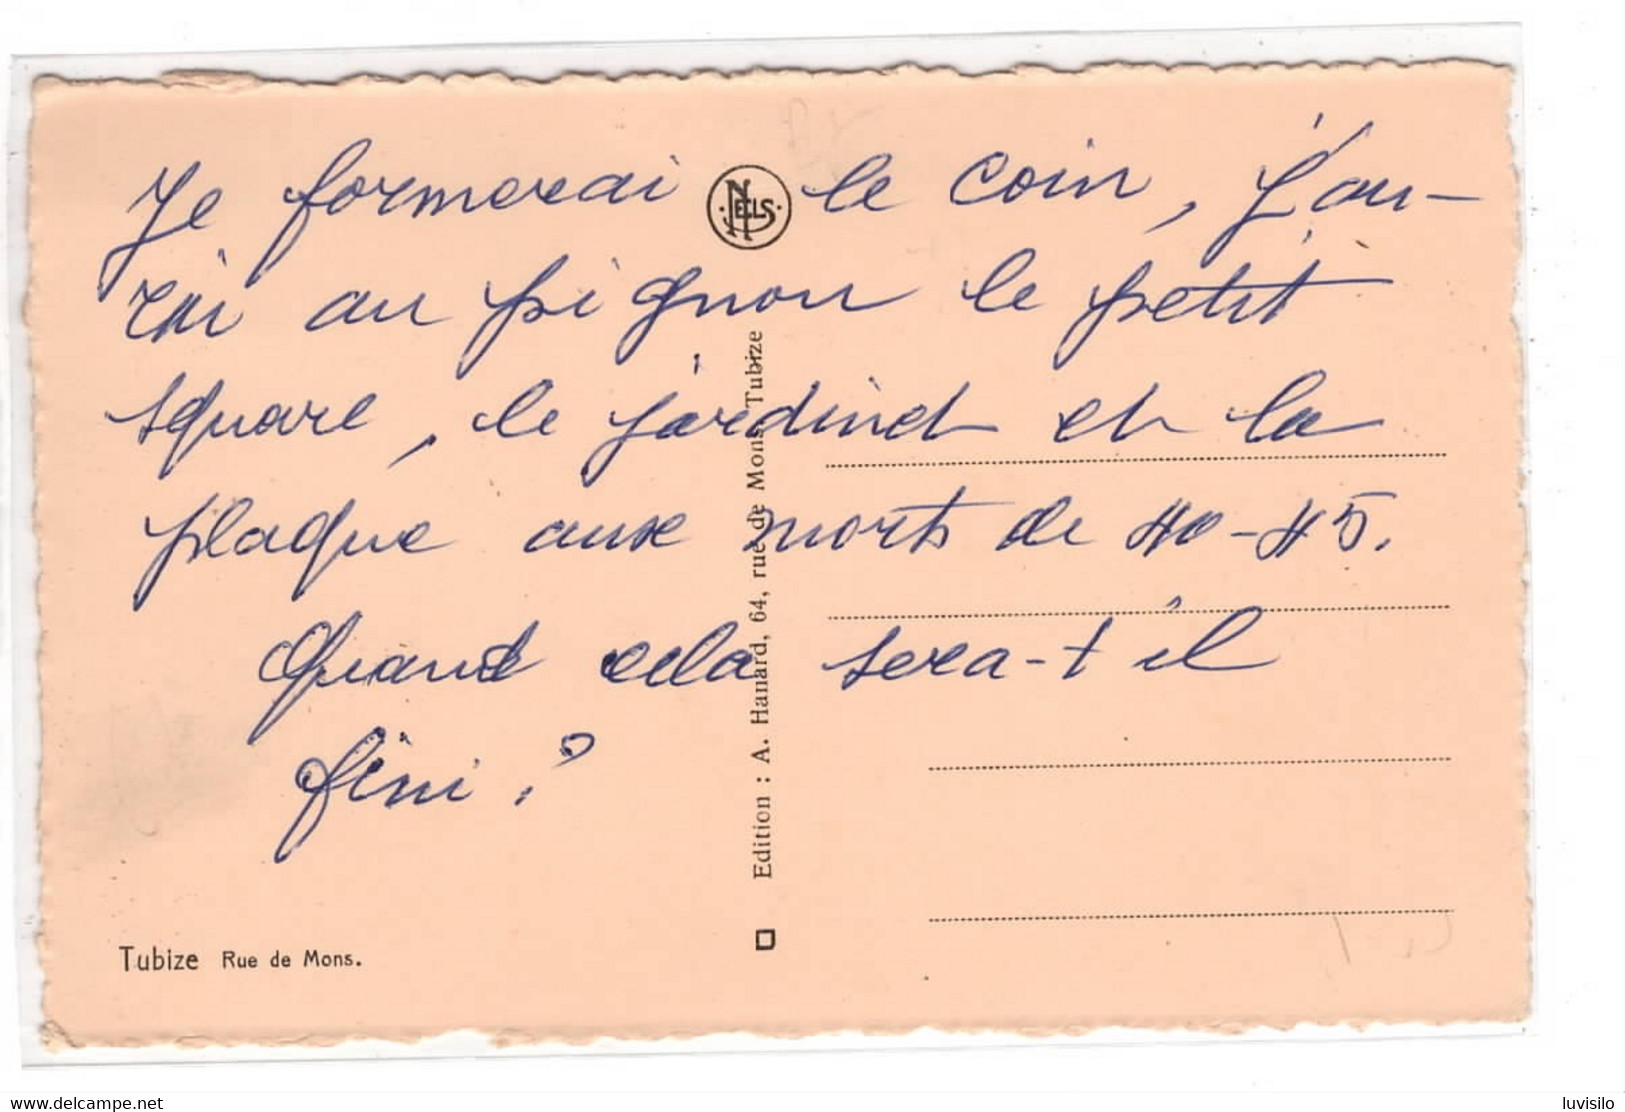 Je formerai le coin, j'au-
rai au pignon le petit
square, le jardinet et la
plaque aux morts de 40-45.
Quand cela sera-t il
fini ?
NELS
Edition : A. Hanard, 64, rue de Mons, Tubize
Tubize Rue de Mons.
www.delcampe.net
luvisilo